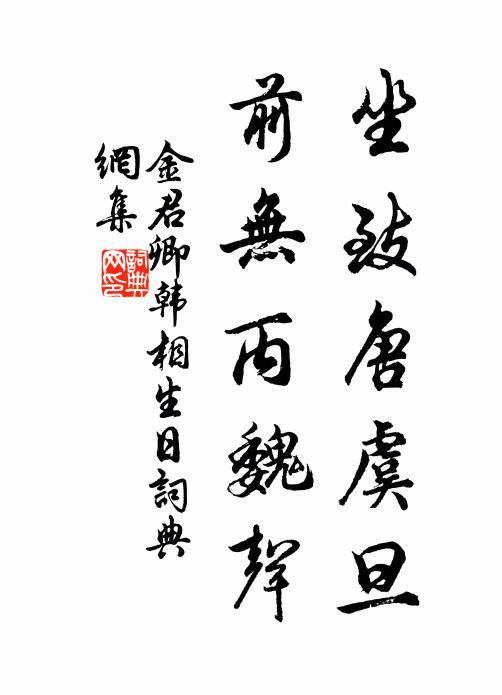 坐致唐虞旦
前無丙魏聲
金君卿韩相生日詞典
網集
詞典
网印